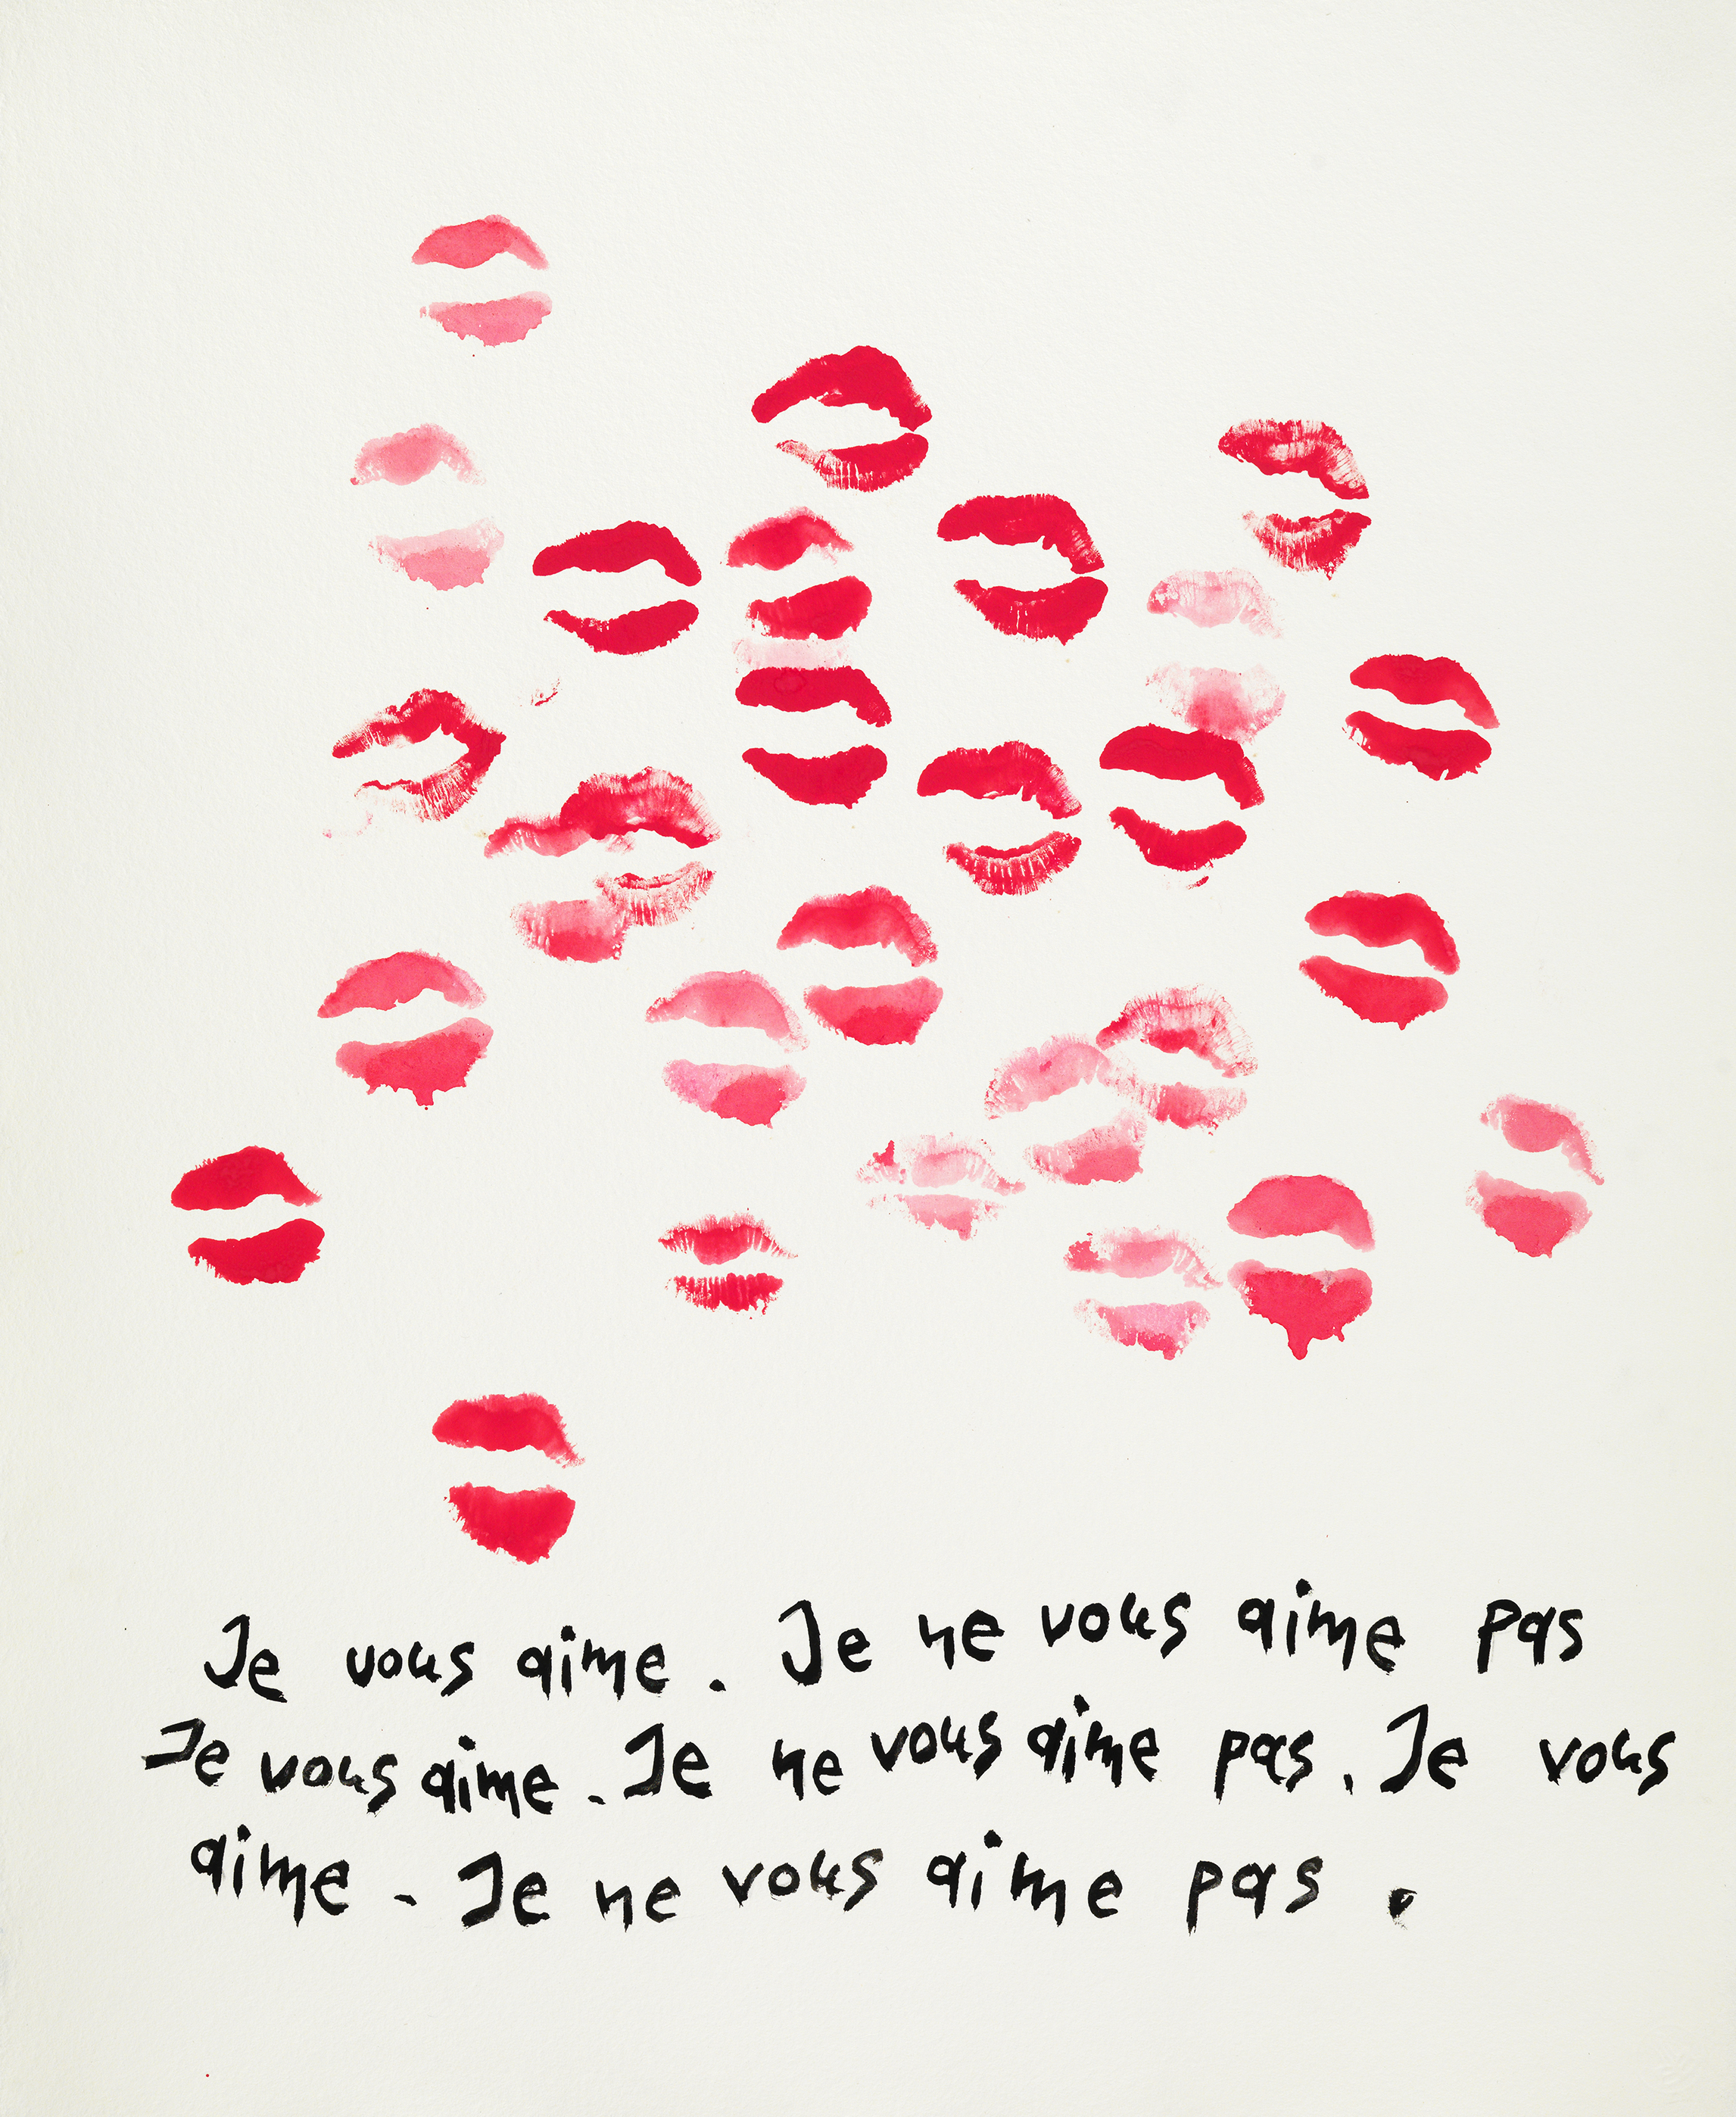 Je vous aime. Je ne vous aime pas
Je vous aime. Je ne vous aime pas. Je vous
aime. Je ne vous aime pas.